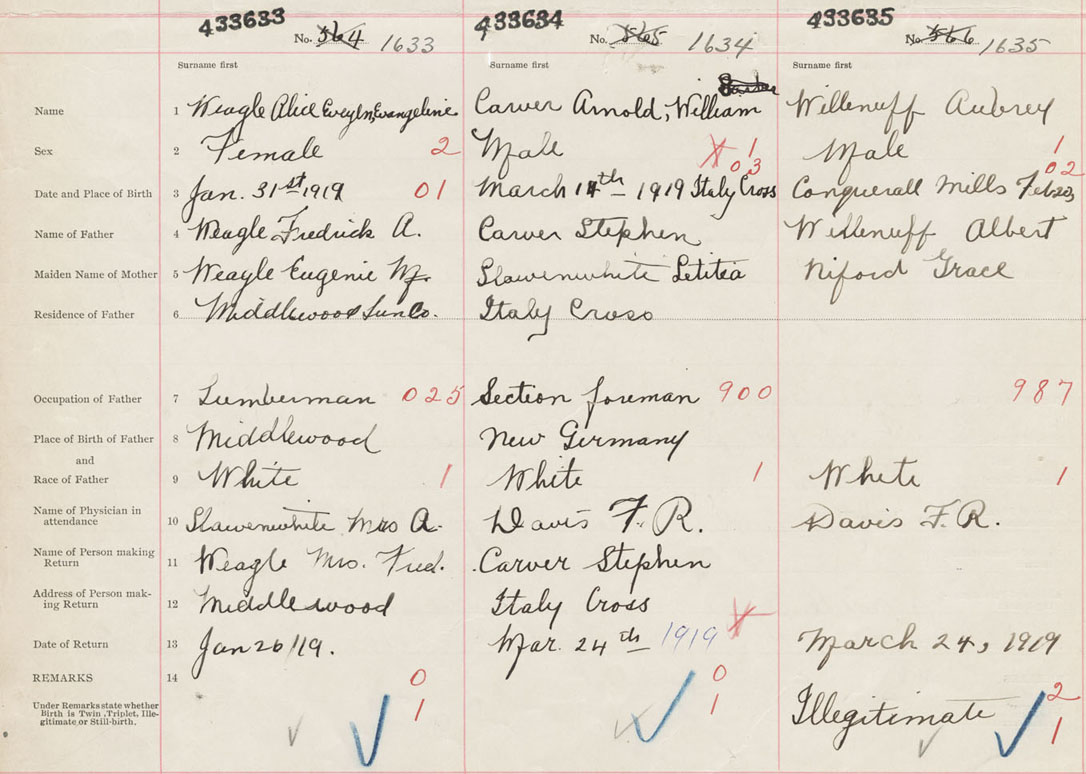 433633 433634 433635
No. 364 1633 No. 365 1634 No. 366 1635
Surname first Surname first Surname first
Name 1 Weagle Alice Eveyln, Evangeline Carver Arnold, William Willenuff Aubrey
Sex 2 Female 2 Male 1 Male 1
03 02
Date and Place of Birth 3 Jan. 31st 1919 01 March 14th 1919 Italy Cross Conquerall Mills Feb 20,
Name of Father 4 Weagle Fredrick A. Carver Stephen Willenuff Albert
Maiden Name of Mother 5 Weagle Eugenie M. Slawenwhite Letitia Niford Grace
Residence of Father 6 Middlewood Lun Co. Italy Cross
Occupation of Father 7 Lumberman 025 Section foreman 900 987
Place of Birth of Father 8 Middlewood New Germany
and
Race of Father 9 White 1 White 1 White 1
Name of Physician in
attendance 10 Slawenwhite Mrs A. Davis F. R. Davis F. R.
Name of Person making
Return 11 Weagle Mrs. Fred. Carver Stephen
Address of Person mak-
ing Return 12 Middlewood Italy Cross
Date of Return 13 Jan 26/19. Mar. 24th 1919 March 24, 1919
REMARKS 14 0 0 2
Under Remarks state whether
Birth is Twin, Triplet, Ille-
gitimate or Still-birth. 1 1 Illegitimate 1